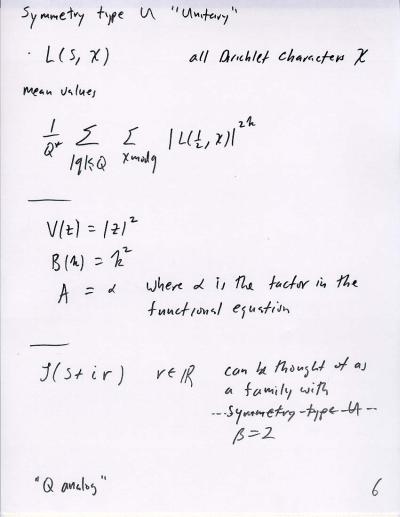 Symmetry type U "Unitary"
· L(s, χ) all Dirichlet characters χ
mean values
1/Q* Σ_{|q|≤Q} Σ_{χ mod q} |L(½, χ)|^{2k}
V(z) = |z|²
B(k) = k²
A = α where α is the factor in the
functional equation
ζ(s + ir) r ∈ ℝ can be thought of as
a family with
Symmetry type U
β = 2
"Q analog"
6